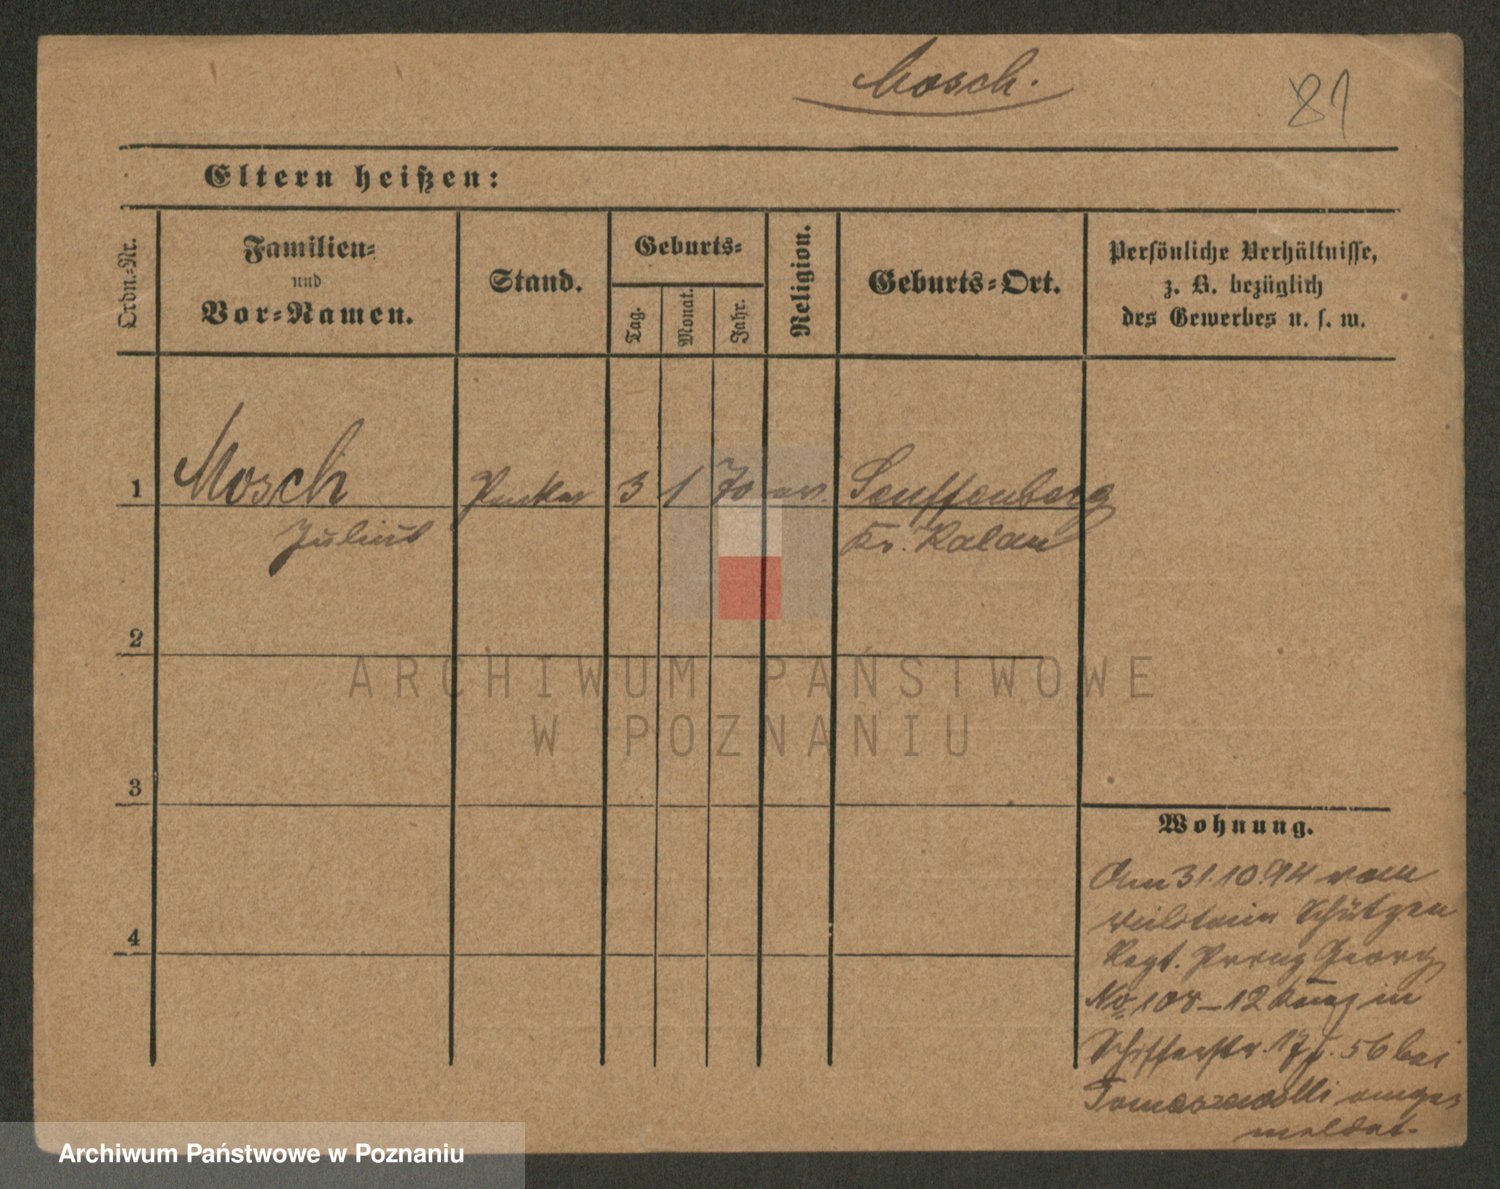 Mosch.
81
Eltern heißen:
Ordn.-Nr.
Familien-
und
Vor-Namen.
Stand.
Geburts-
Tag.
Monat.
Jahr.
Religion.
Geburts-Ort.
Persönliche Verhältnisse,
z. B. bezüglich
des Gewerbes u. s. w.
1 Mosch 3 1 70 ev. Senftenberg
Julius Kr. Kalau
2
3
4
ARCHIWUM PAŃSTWOWE
W POZNANIU
Wohnung.
Am 31.10.94 vom
Schützen
Regt. Prinz Georg
No 108-12 Komp in
Schifferstr. 56 bei
Tomaszewski ange
meldet.
Archiwum Państwowe w Poznaniu